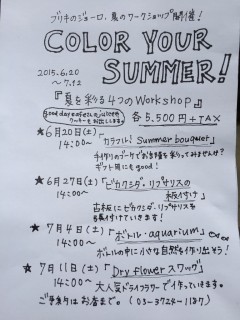 ブリキのジョーロ、夏のワークショップ開催！
COLOR YOUR
SUMMER!
2015.6.20
〜7.12
『夏を彩る4つのWorkshop』
各5,500円+TAX
★6月20日(土)「カラフル! Summer bouquet」
14:00〜
手作りのブーケでお部屋を彩ってみませんか？
ギフト用にもgood!
★6月27日(土)「ビカクシダ・リプサリスの
14:00〜 板付け」
古板にビカクシダ・リプサリスを
★7月4日(土)「ボトル・aquarium」
14:00〜
ボトルの中に小さな自然を作り出そう！
★7月11日(土)「Dry flower スワッグ」
14:00〜
大人気ドライフラワーで作っていきます。
(03-3724-1187)